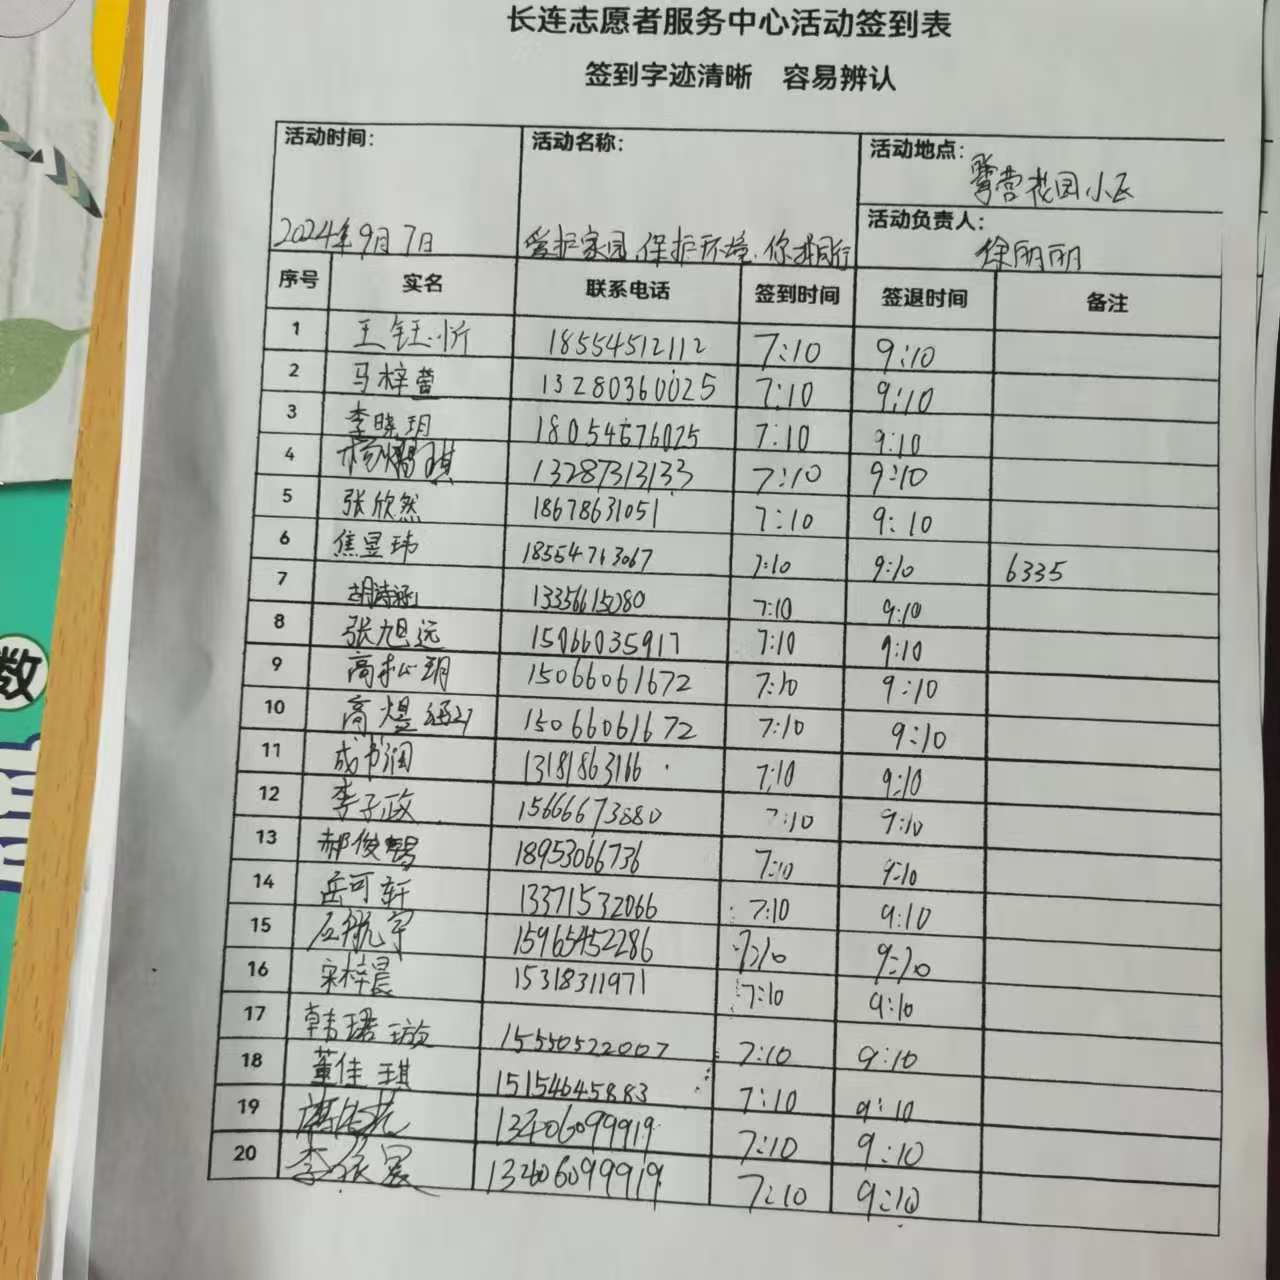 长连志愿者服务中心活动签到表
签到字迹清晰 容易辨认
活动时间： 活动名称： 活动地点：
花园小区
2024年9月7日 爱护家园、保护环境、你我同行 活动负责人：
徐丽丽
序号 实名 联系电话 签到时间 签退时间 备注
1 王钰忻 18554512112 7:10 9:10
2 马梓萱 13280360025 7:10 9:10
3 李晓玥 18054676025 7:10 9:10
4 杨 琪 13287313133 7:10 9:10
5 张欣然 18678631051 7:10 9:10
6 焦昱玮 18554713067 7:10 9:10 6335
7 胡诗涵 13356615080 7:10 9:10
8 张旭远 15066035917 7:10 9:10
9 高松玥 15066061672 7:10 9:10
10 高煜涵 15066061672 7:10 9:10
11 成书润 13181863166 7:10 9:10
12 李子政 15666673880 7:10 9:10
13 郝俊 18953066736 7:10 9:10
14 岳可轩 13371532066 7:10 9:10
15 航宇 15965452286 7:10 9:10
16 宋梓晨 15318311971 7:10 9:10
17 韩珺璇 15550522007 7:10 9:10
18 董佳琪 15154645883 7:10 9:10
19 13406099919 7:10 9:10
20 李 13406099919 7:10 9:10
数